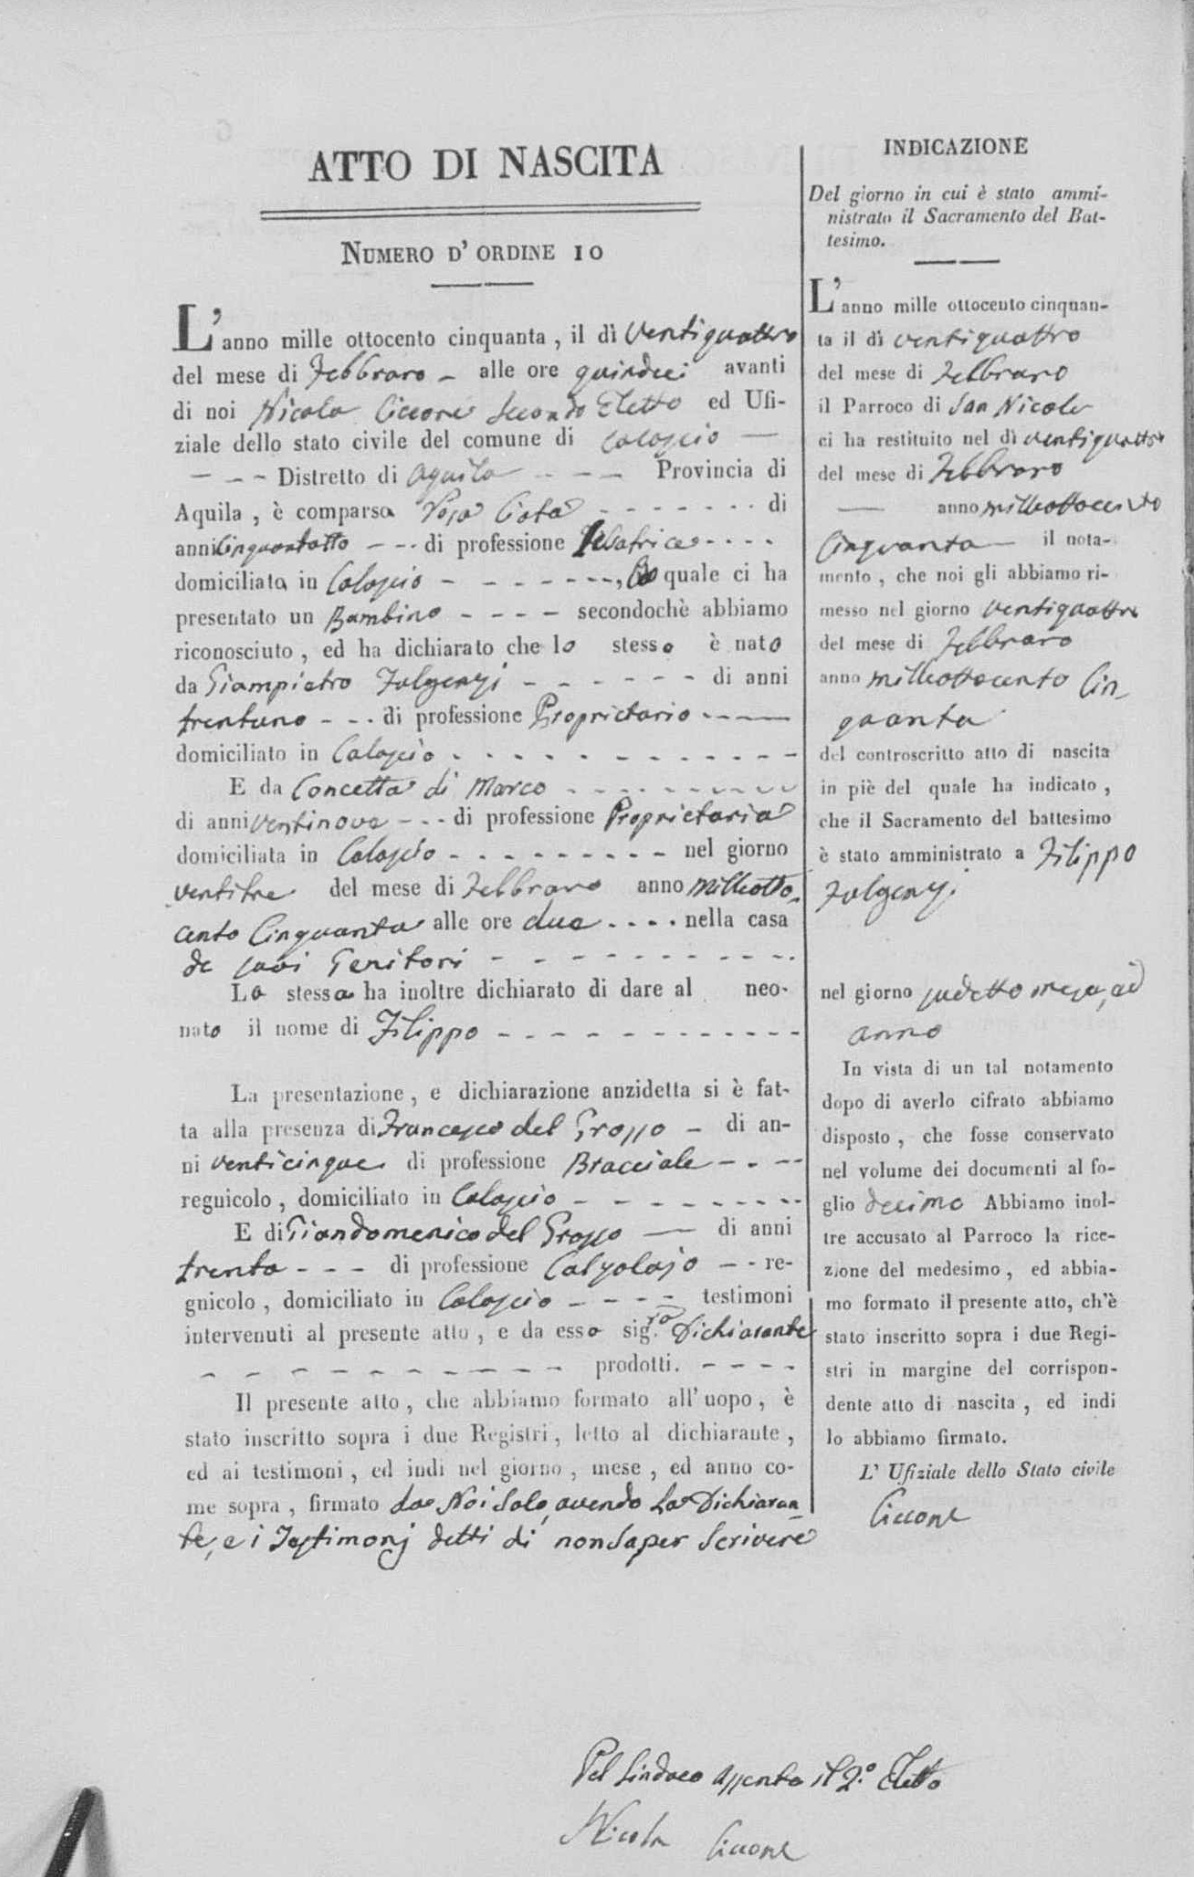 ATTO DI NASCITA
NUMERO D' ORDINE 10
L' anno mille ottocento cinquanta, il dì Ventiquattro
del mese di Febbraro - alle ore quindici avanti
di noi Nicola Ciccone Secondo Eletto ed Ufi-
ziale dello stato civile del comune di Calascio —
— - - Distretto di Aquila - - — Provincia di
Aquila, è comparsa Rosa Ciota - - - - - - - di
anni Cinquantotto - - - di professione - - - -
domiciliata in Calascio - - - - - - -, La quale ci ha
presentato un Bambino - - - - secondochè abbiamo
riconosciuto, ed ha dichiarato che lo stesso è nato
da Giampietro Fulgenzj - - - - - - di anni
trentuno - - - di professione Proprietario - - - —
domiciliato in Calascio - - - - - - - - - - -
E da Concetta di Marco - - - - - - - - -
di anni Ventinove - - - di professione Proprietaria
domiciliata in Calascio - - - - - - - - - nel giorno
ventitre del mese di Febbraro anno Milleotto-
cento Cinquanta alle ore due - - - - nella casa
de suoi Genitori - - - - - - - - - -
La stessa ha inoltre dichiarato di dare al neo-
nato il nome di Filippo - - - - - - - - - - - -
La presentazione, e dichiarazione anzidetta si è fat-
ta alla presenza di Francesco del Grosso - di an-
ni Venticinque di professione Bracciale - - --
regnicolo, domiciliato in Calascio - - - - - - - - -
E di Giandomenico del Grosso — di anni
trenta - - - di professione Calzolajo - - re-
gnicolo, domiciliato in Calascio - - - - testimoni
intervenuti al presente atto, e da essa sig.ra Dichiarante
- - - - - - - - - - - prodotti. - - - -
Il presente atto, che abbiamo formato all' uopo, è
stato inscritto sopra i due Registri, letto al dichiarante,
ed ai testimoni, ed indi nel giorno, mese, ed anno co-
me sopra, firmato da Noi Solo, avendo La Dichiaran
te, e i Testimonj detti di non Saper Scrivere
Pel Sindaco assente il 2.° Eletto
Nicola Ciccone
INDICAZIONE
Del giorno in cui è stato ammi-
nistrato il Sacramento del Bat-
tesimo.
L' anno mille ottocento cinquan-
ta il dì ventiquattro
del mese di Febbraro
il Parroco di San Nicola
ci ha restituito nel dì ventiquattro
del mese di Febbraro
— anno milleottocento
Cinquanta — il nota-
mento, che noi gli abbiamo ri-
messo nel giorno Ventiquattro
del mese di Febbraro
anno milleottocento Cin-
quanta
del controscritto atto di nascita
in piè del quale ha indicato,
che il Sacramento del battesimo
è stato amministrato a Filippo
Fulgenzj.
nel giorno sudetto mese, ed
anno
In vista di un tal notamento
dopo di averlo cifrato abbiamo
disposto, che fosse conservato
nel volume dei documenti al fo-
glio decimo Abbiamo inol-
tre accusato al Parroco la rice-
zione del medesimo, ed abbia-
mo formato il presente atto, ch'è
stato inscritto sopra i due Regi-
stri in margine del corrispon-
dente atto di nascita, ed indi
lo abbiamo firmato.
L' Ufiziale dello Stato civile
Ciccone